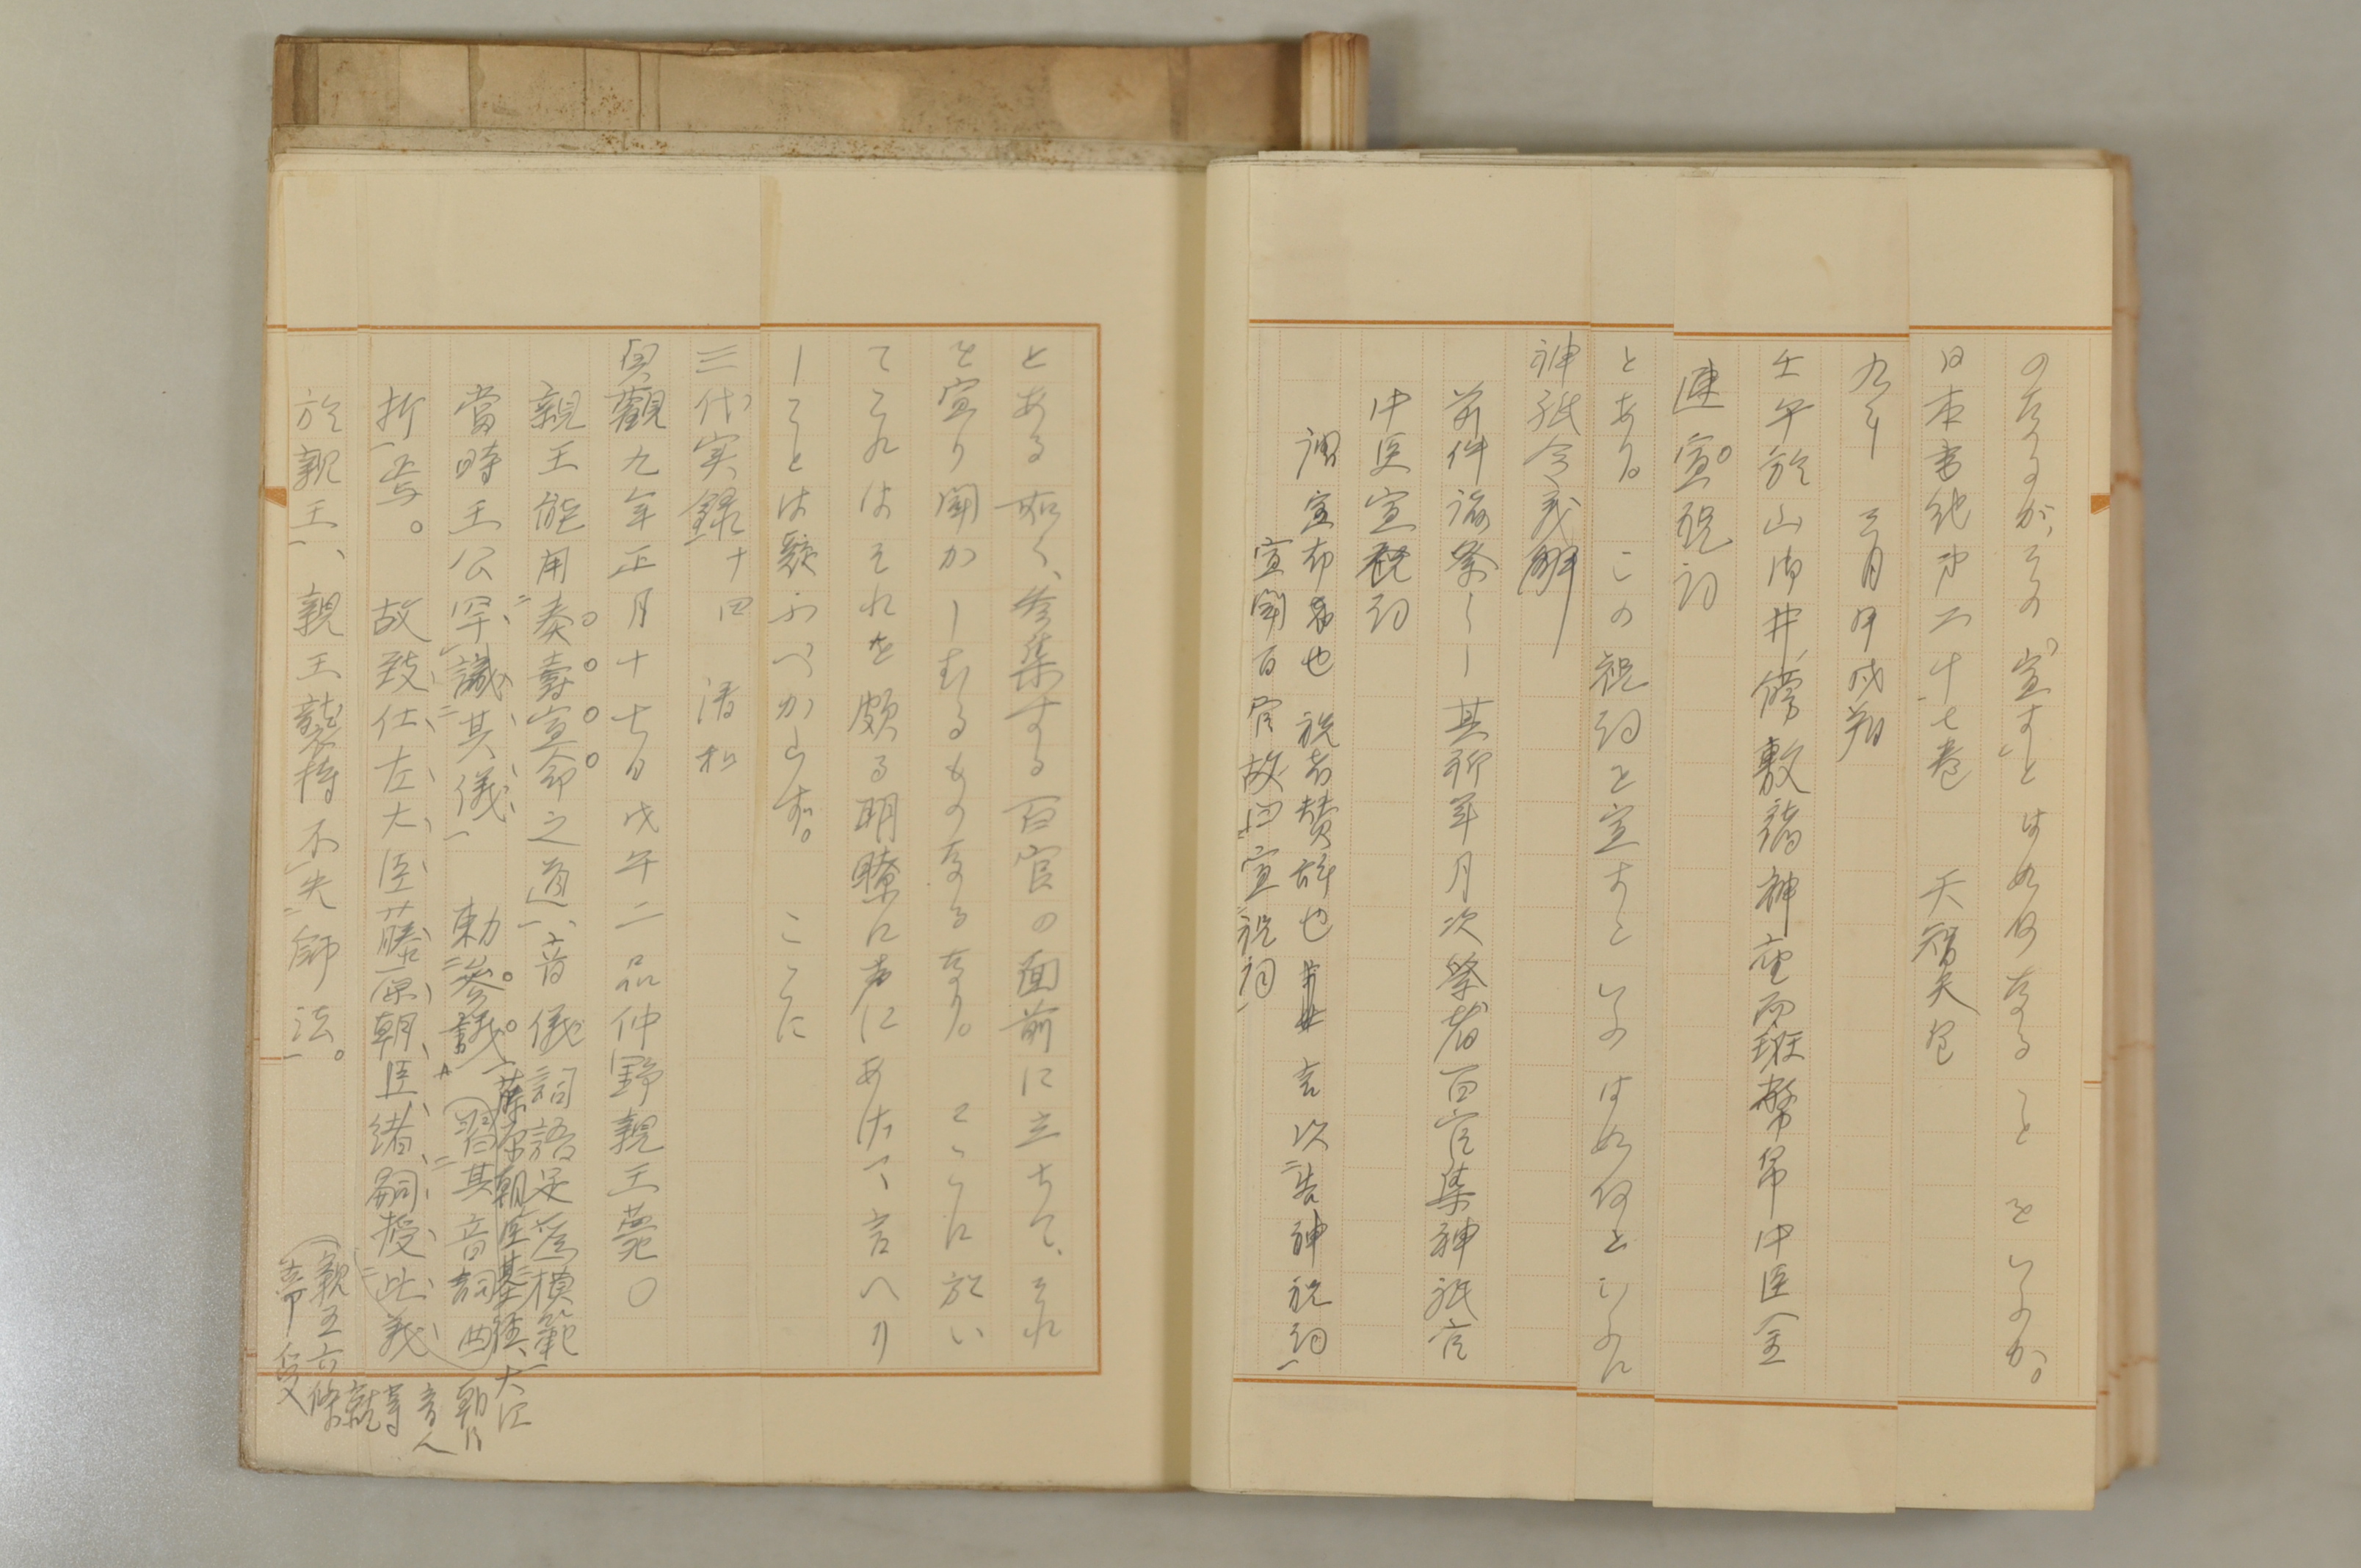 のなるが、その「宣す」とは如何なることをいふのか。
日本書紀第二十七巻　天智天皇
九年　三月甲戌朔
壬午於山御井傍敷諸神座而班幣帛中臣金
連宣祝詞
とある。この祝詞を宣すといふは如何といふに
神祇令義解
前件諸祭――其祈年月次祭者百官集神祇官
中臣宣祝詞
謂宣布也祝者賛辞也　言以告神祝詞
宣聞百官故曰宣祝詞
とある如く、参集する百官の面前に立ちて、それ
を宣り聞かしむるものなるなり。ここに於い
てこれはそれを頗る明瞭に声にあげて言へり
しことは疑ふべからず。ここに
三代実録　十四　清和
貞観九年正月十七日戊午二品仲野親王薨。
親王能用奏寿宣命之道、音儀詞語足為模範
當時王公罕識其儀　勅参議藤原朝臣基経、大江
朝臣音人等就
親王六條
第受
習其音詞曲
折焉。故致仕左大臣藤原朝臣緒嗣授此義
於親王、親王襲持不失師法。